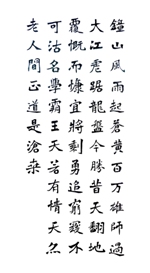 鐘山風雨起蒼黃百万雄師過
大江虎踞龍盤今勝昔天翻地
覆慨而慷宜將剩勇追窮寇不
可沽名學霸王天若有情天亦
老人間正道是滄桑